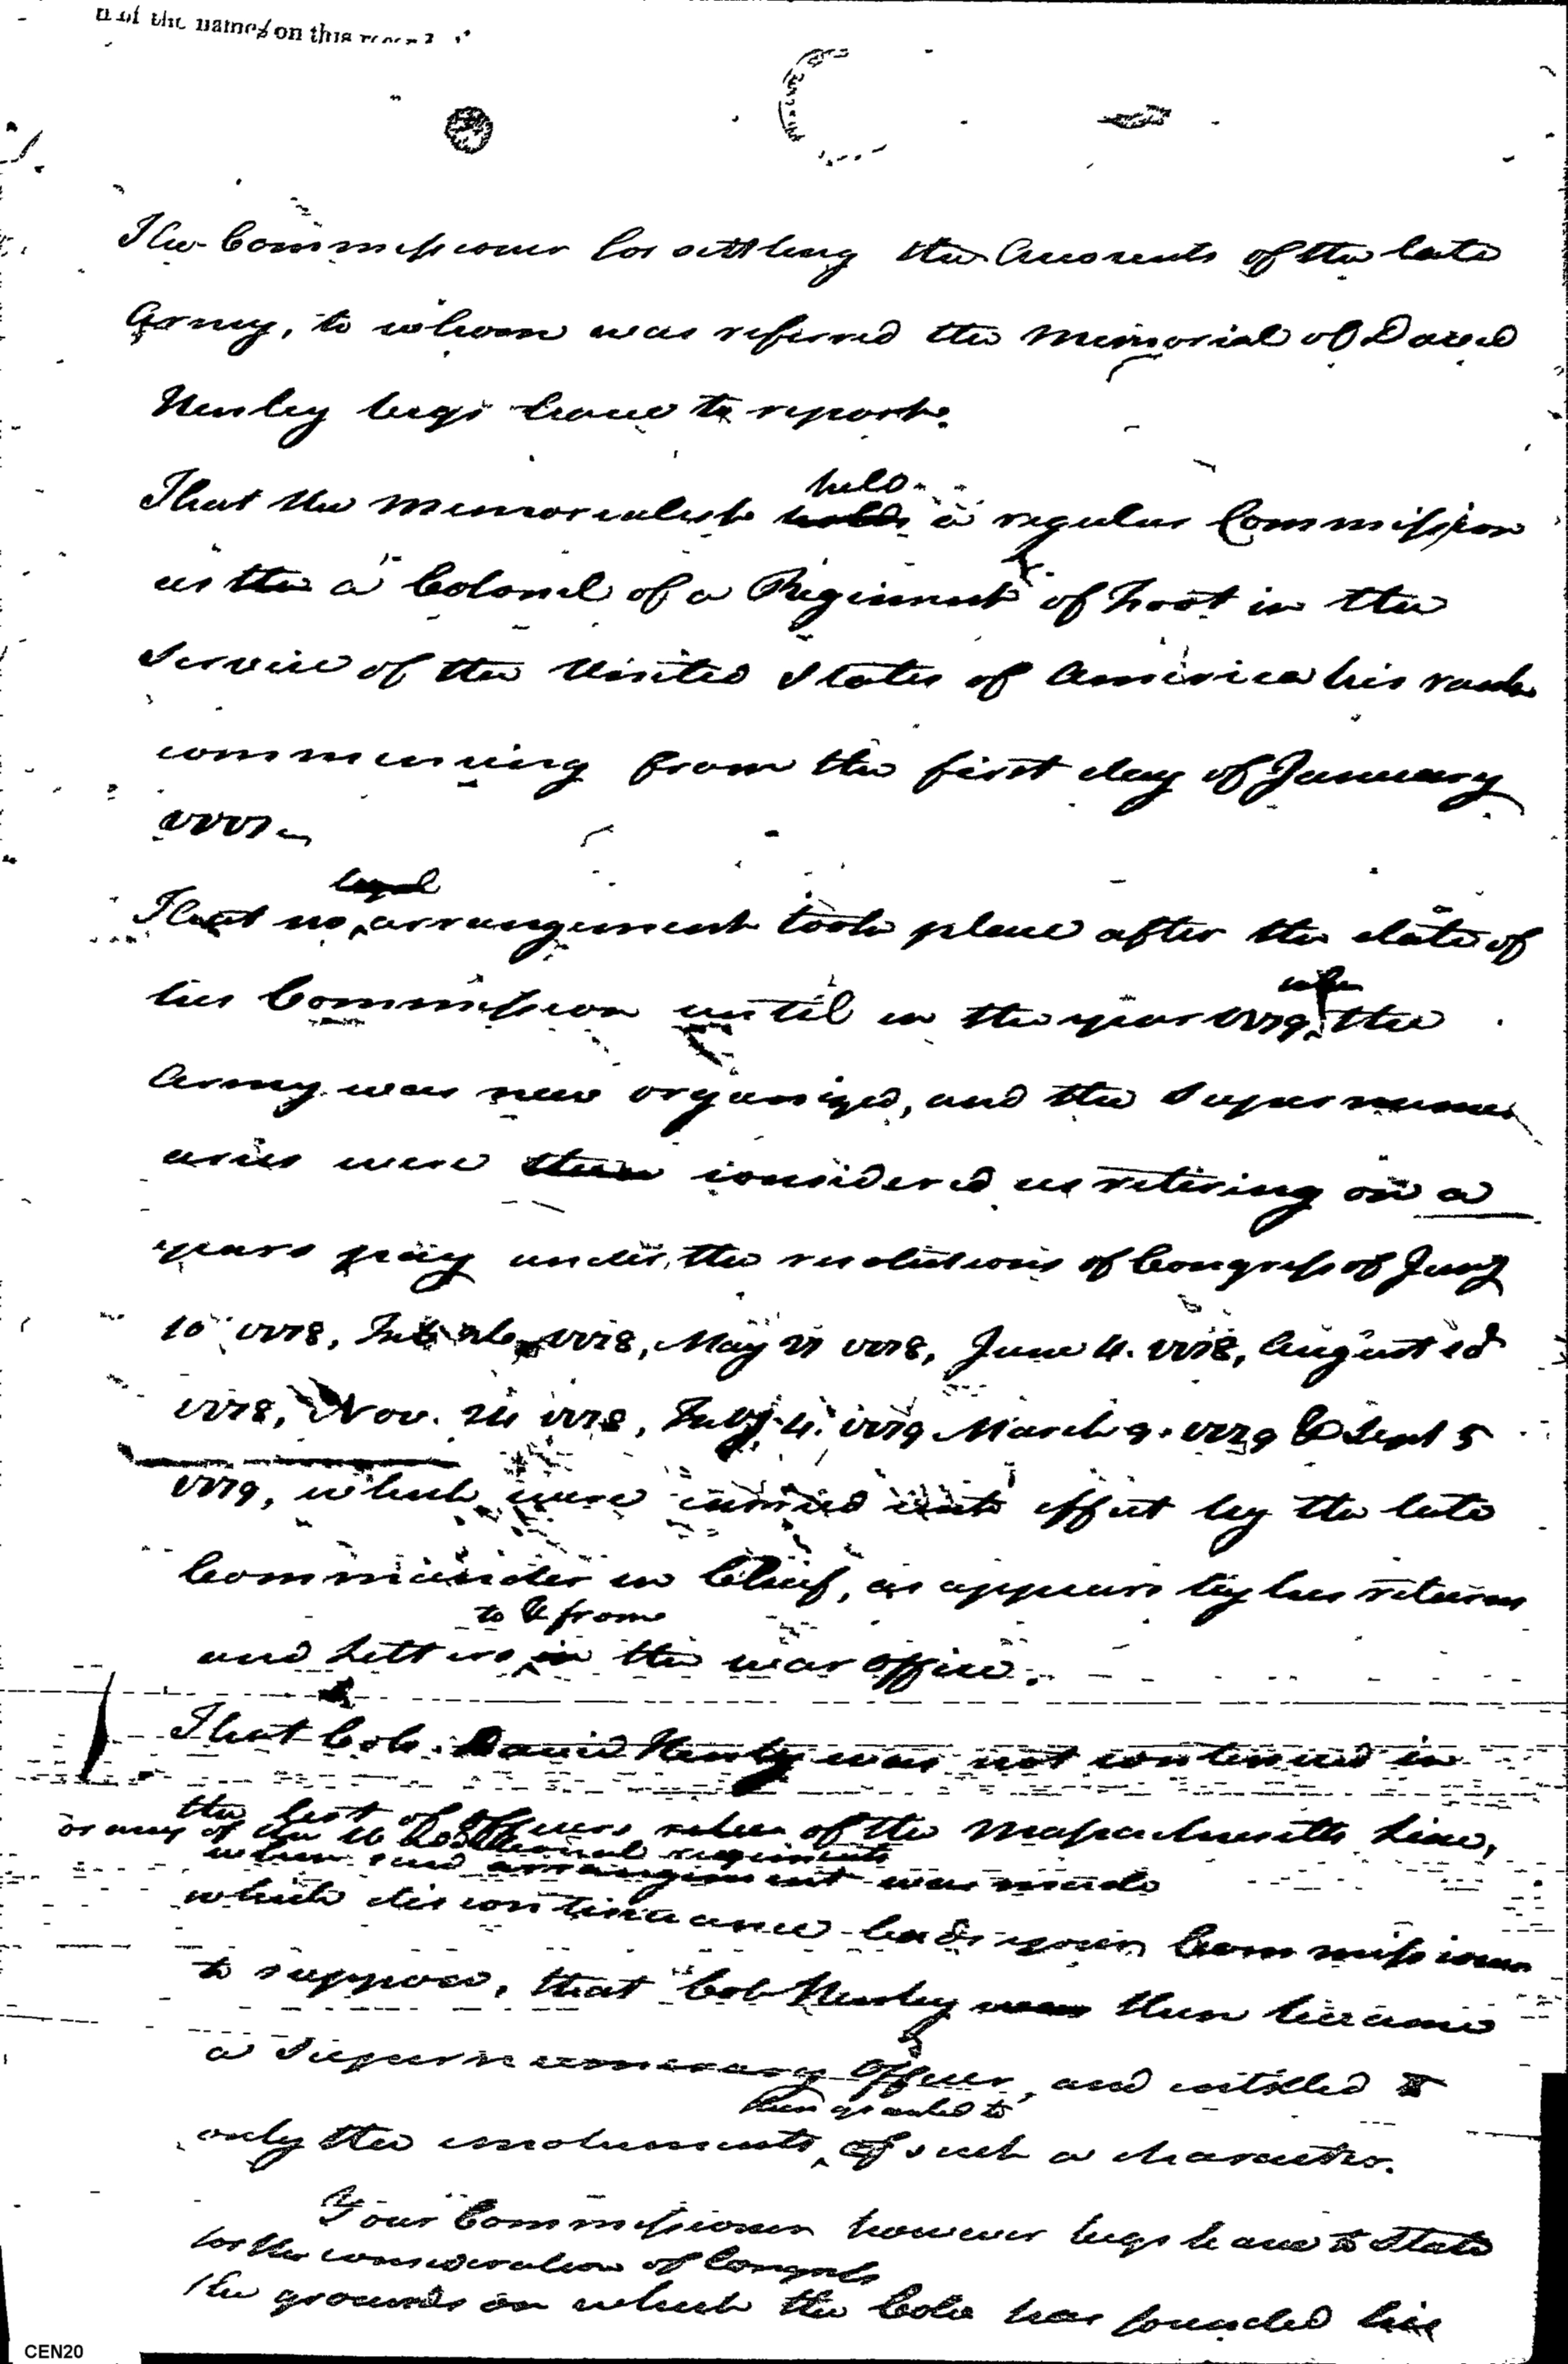 of the names on this
The Commissioner for settling the Accounts of the late
Army, to whom was referred the memorial of David
Henley begs leave to report.
held
That the memorialist holds a regular Commission
as the a Colonel of a Regiment of Foot in the
Service of the United States of America his rank
commencing from the first day of January
1777.
legal
That no arrangement took place after the date of
his Commission until in the year 1779, the
when
Army was new organized, and the Supernumer
aries were then considered as retiring on a
years pay under the resolutions of Congress of Jany
10 1778, 1778, May 27 1778, June 4. 1778, August 10
1778, Nov. 24 1778, Feby. 4. 1779 March 9. 1779 & Sept 5
1779, which were carried into effect by the late
Commander in Chief, as appears by his returns
to & from
and Letters in the war office.
That Colo. David Henley was not continued in
the list of officers of the Massachusetts Line,
or any of the 16 Additional regiments
when said arrangement was made
which discontinuance leads your Commissioner
to suppose, that Col Henley was then became
a Supernumerary Officer, and entitled to
then granted to
only the emoluments, of such a character.
Your Commissioner however begs leave to State
for the consideration of Congress
the grounds on which the Colo has founded his
CEN20